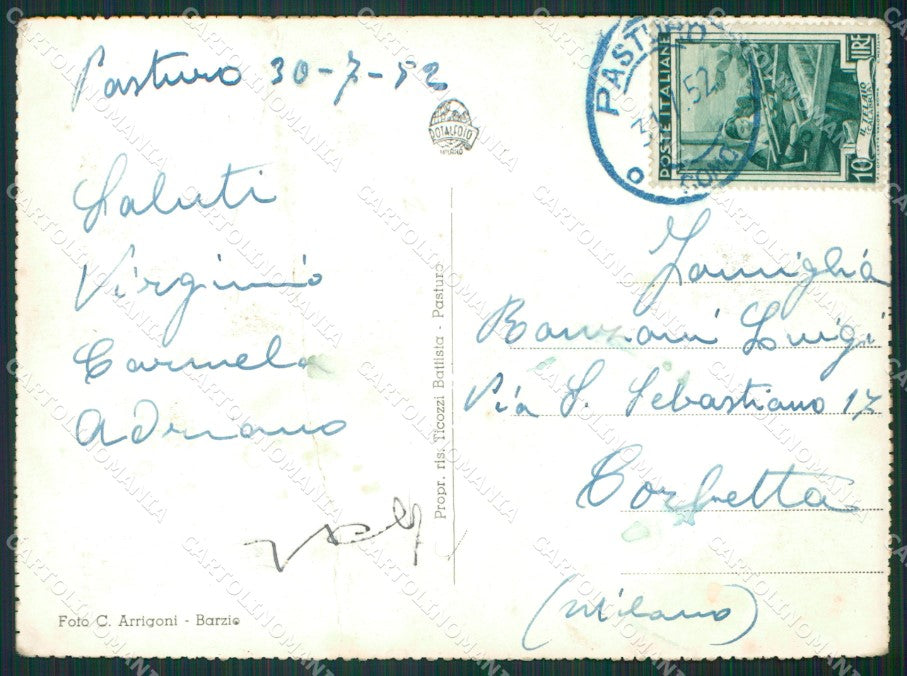 Pasturo 30-7-52
Saluti
Virginio
Carmela
Adriano
Foto C. Arrigoni - Barzio
TOTALFOTO
MILANO
Propr. ris. Ticozzi Battista - Pasturo
PASTURO
COMO
POSTE ITALIANE
LIRE
10
IL TELAIO
Famiglia
Luigi
Via S. Sebastiano 17
Corbetta
(Milano)
CARTOLINOMANIA